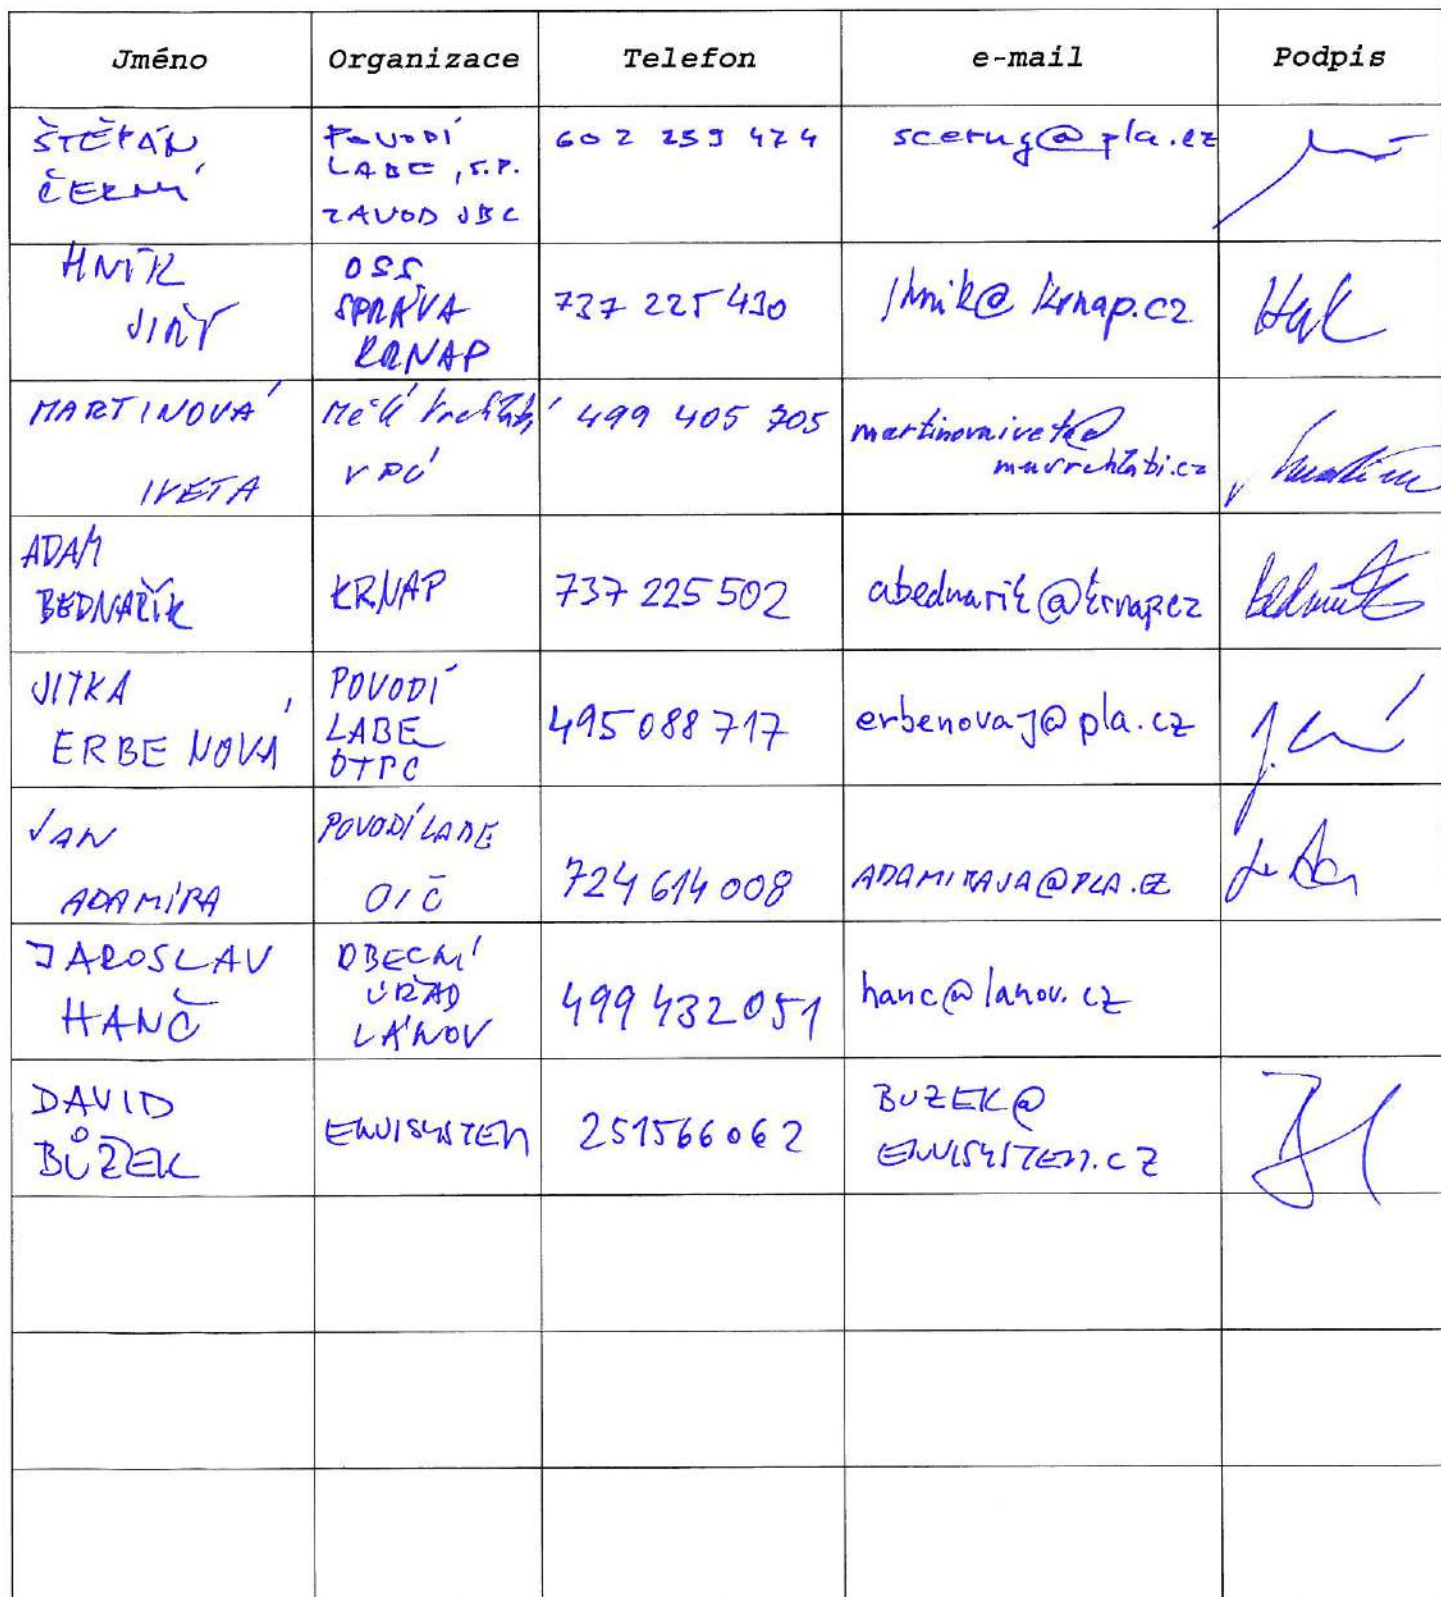 Jméno Organizace Telefon e-mail Podpis
ŠTĚPÁN
ČERNÝ
POVODÍ
LABE, S.P.
ZÁVOD JBC
602 259 474
scerny@pla.cz
HNÍK
JIŘÍ
OSS
SPRÁVA
KRNAP
737 225 430
jhnik@krnap.cz
MARTINOVÁ
IVETA
MěÚ Vrchlabí
499 405 705
martinovaiveta@
muvrchlabi.cz
ADAM
BEDNAŘÍK
KRNAP
737 225 502
abednarik@krnap.cz
JITKA
ERBENOVÁ
POVODÍ
LABE
OTPČ
495 088 717
erbenovaJ@pla.cz
JAN
ADAMÍRA
POVODÍ LABE
OIČ
724 614 008
ADAMIRAJA@PLA.CZ
JAROSLAV
HANČ
OBECNÍ
ÚŘAD
LÁNOV
499 432 051
hanc@lanov.cz
DAVID
BŮŽEK
ENVISYSTEM
251566062
BUZEK@
ENVISYSTEM.CZ